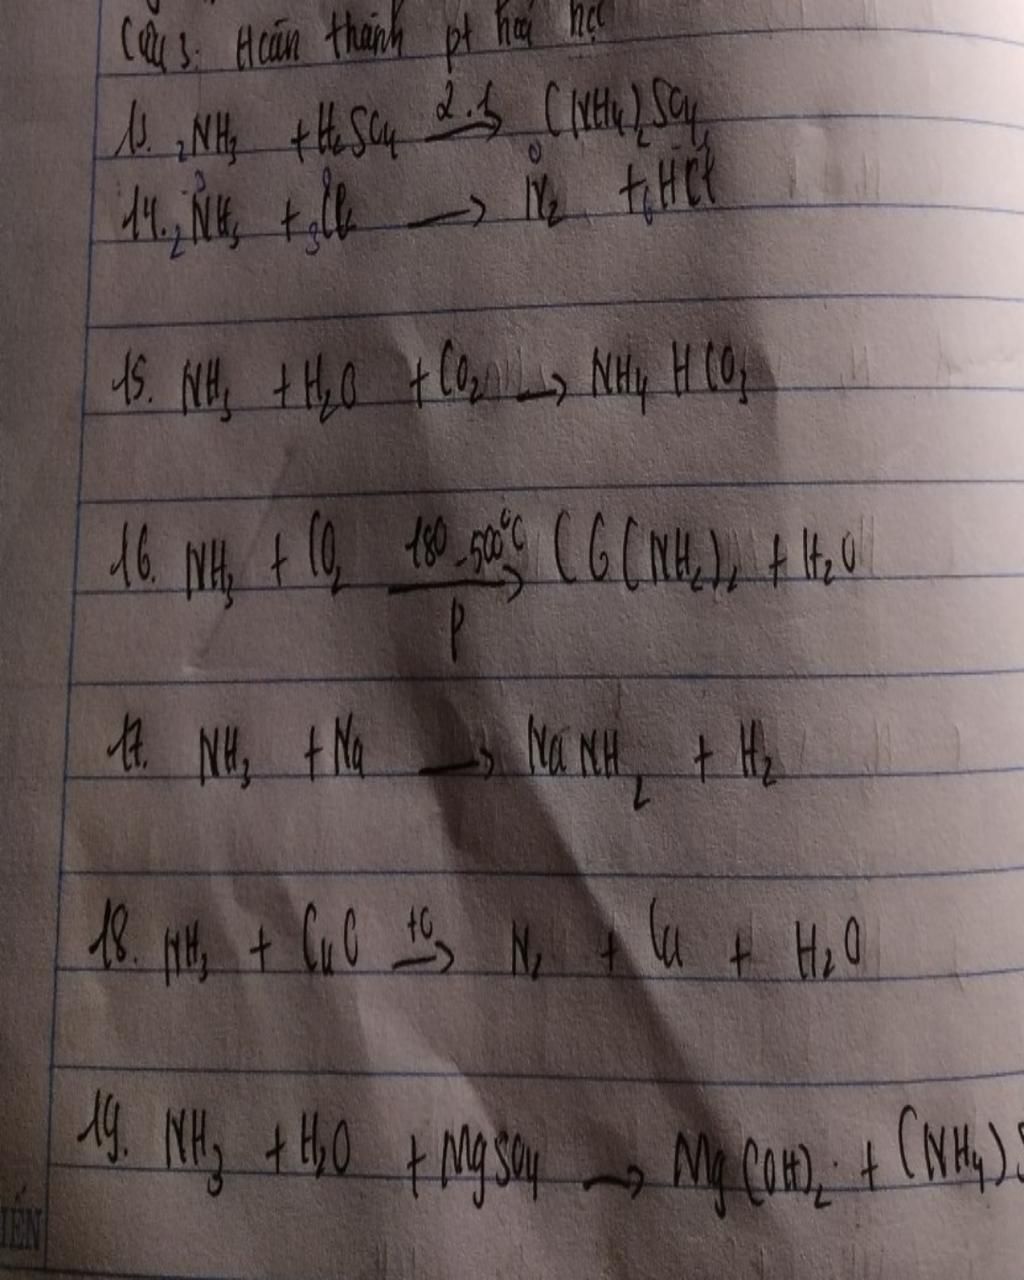 Câu 3: Hoàn thành pt hoá học
13. 2NH3 + H2SO4 2.1→ (NH4)2SO4
14. 2NH3 + 3Cl2 → N2 + 6HCl
15. NH3 + H2O + CO2 → NH4HCO3
16. NH3 + CO2 180-500°C→ p (NH2)2 + H2O
17. NH3 + Na → NaNH2 + H2
18. NH3 + CuO → N2 + Cu + H2O
19. NH3 + H2O + MgSO4 → Mg(OH)2 + (NH4)S